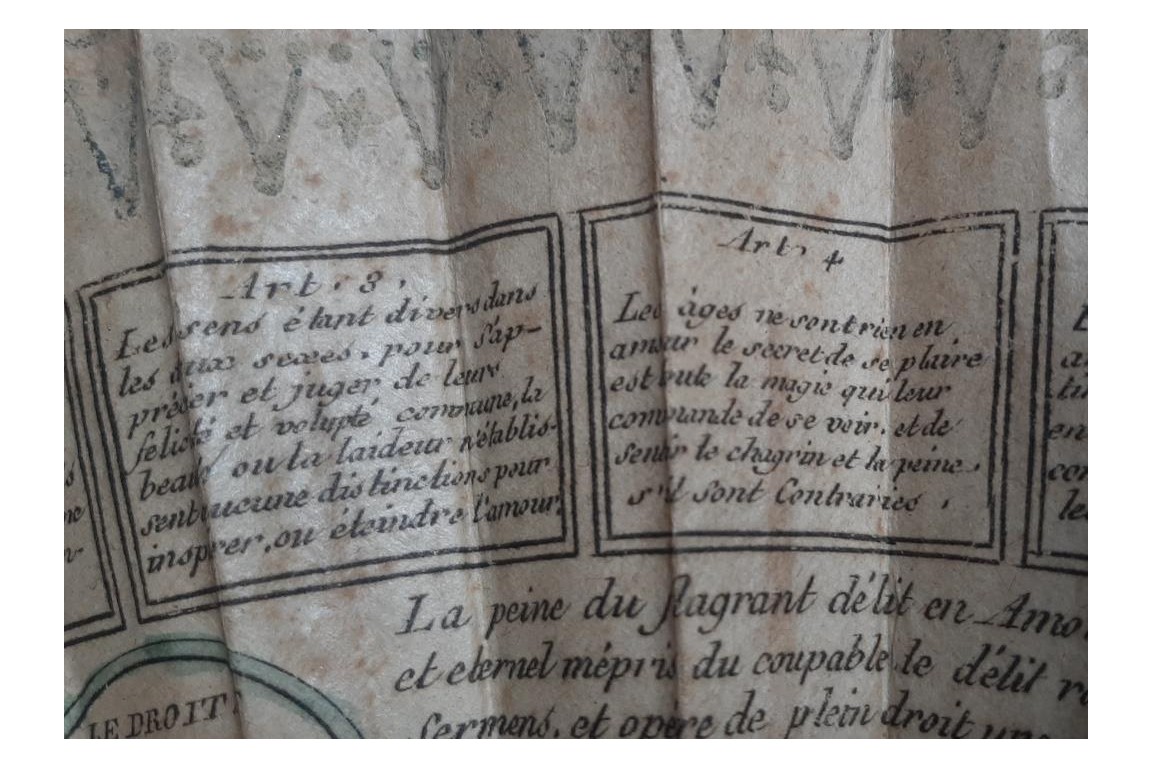 Art. 3.
Les sens étant divers dans
les deux sexes, pour s'ap-
précier et juger de leurs
félicité et volupté commune, la
beauté ou la laideur n'établis-
sent aucune distinctions pour
inspirer, ou éteindre l'amour.
Art. 4
Les âges ne sont rien en
amour le secret de se plaire
est toute la magie qui leur
commande de se voir, et de
sentir le chagrin et la peine
s'il sont Contrariés.
La peine du flagrant délit en Amo
et eternel mépris du coupable le délit r
sermens, et opere de plein droit une
LE DROIT